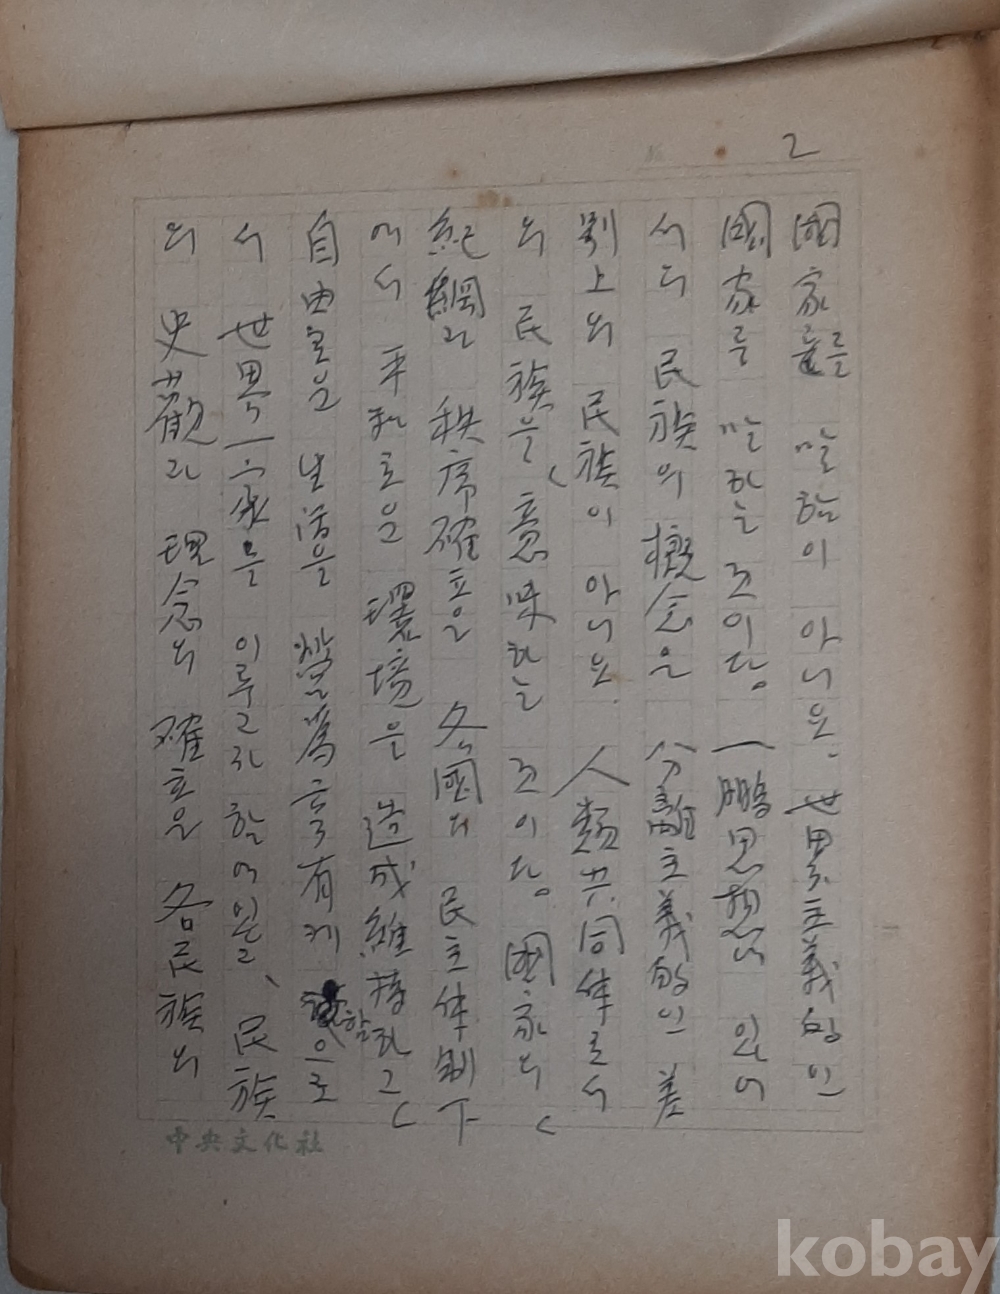 2
國家를 말함이 아니요. 世界主義的인
國家를 말하는 것이다. 一鵬思想에 있어
서의 民族의 槪念은 分離主義的인 差
別上의 民族이 아니요. 人類共同体로서
의 民族을 意味하는 것이다. 國家의
紀綱과 秩序確立은 各國의 民主体制下
에서 平和로운 環境을 造成維持하고
自由로운 生活을 營爲享有케 함으로
서 世界一家를 이루고자 함에 있고、民族
의 史觀과 理念의 確立은 各民族의
中央文化社
kobay